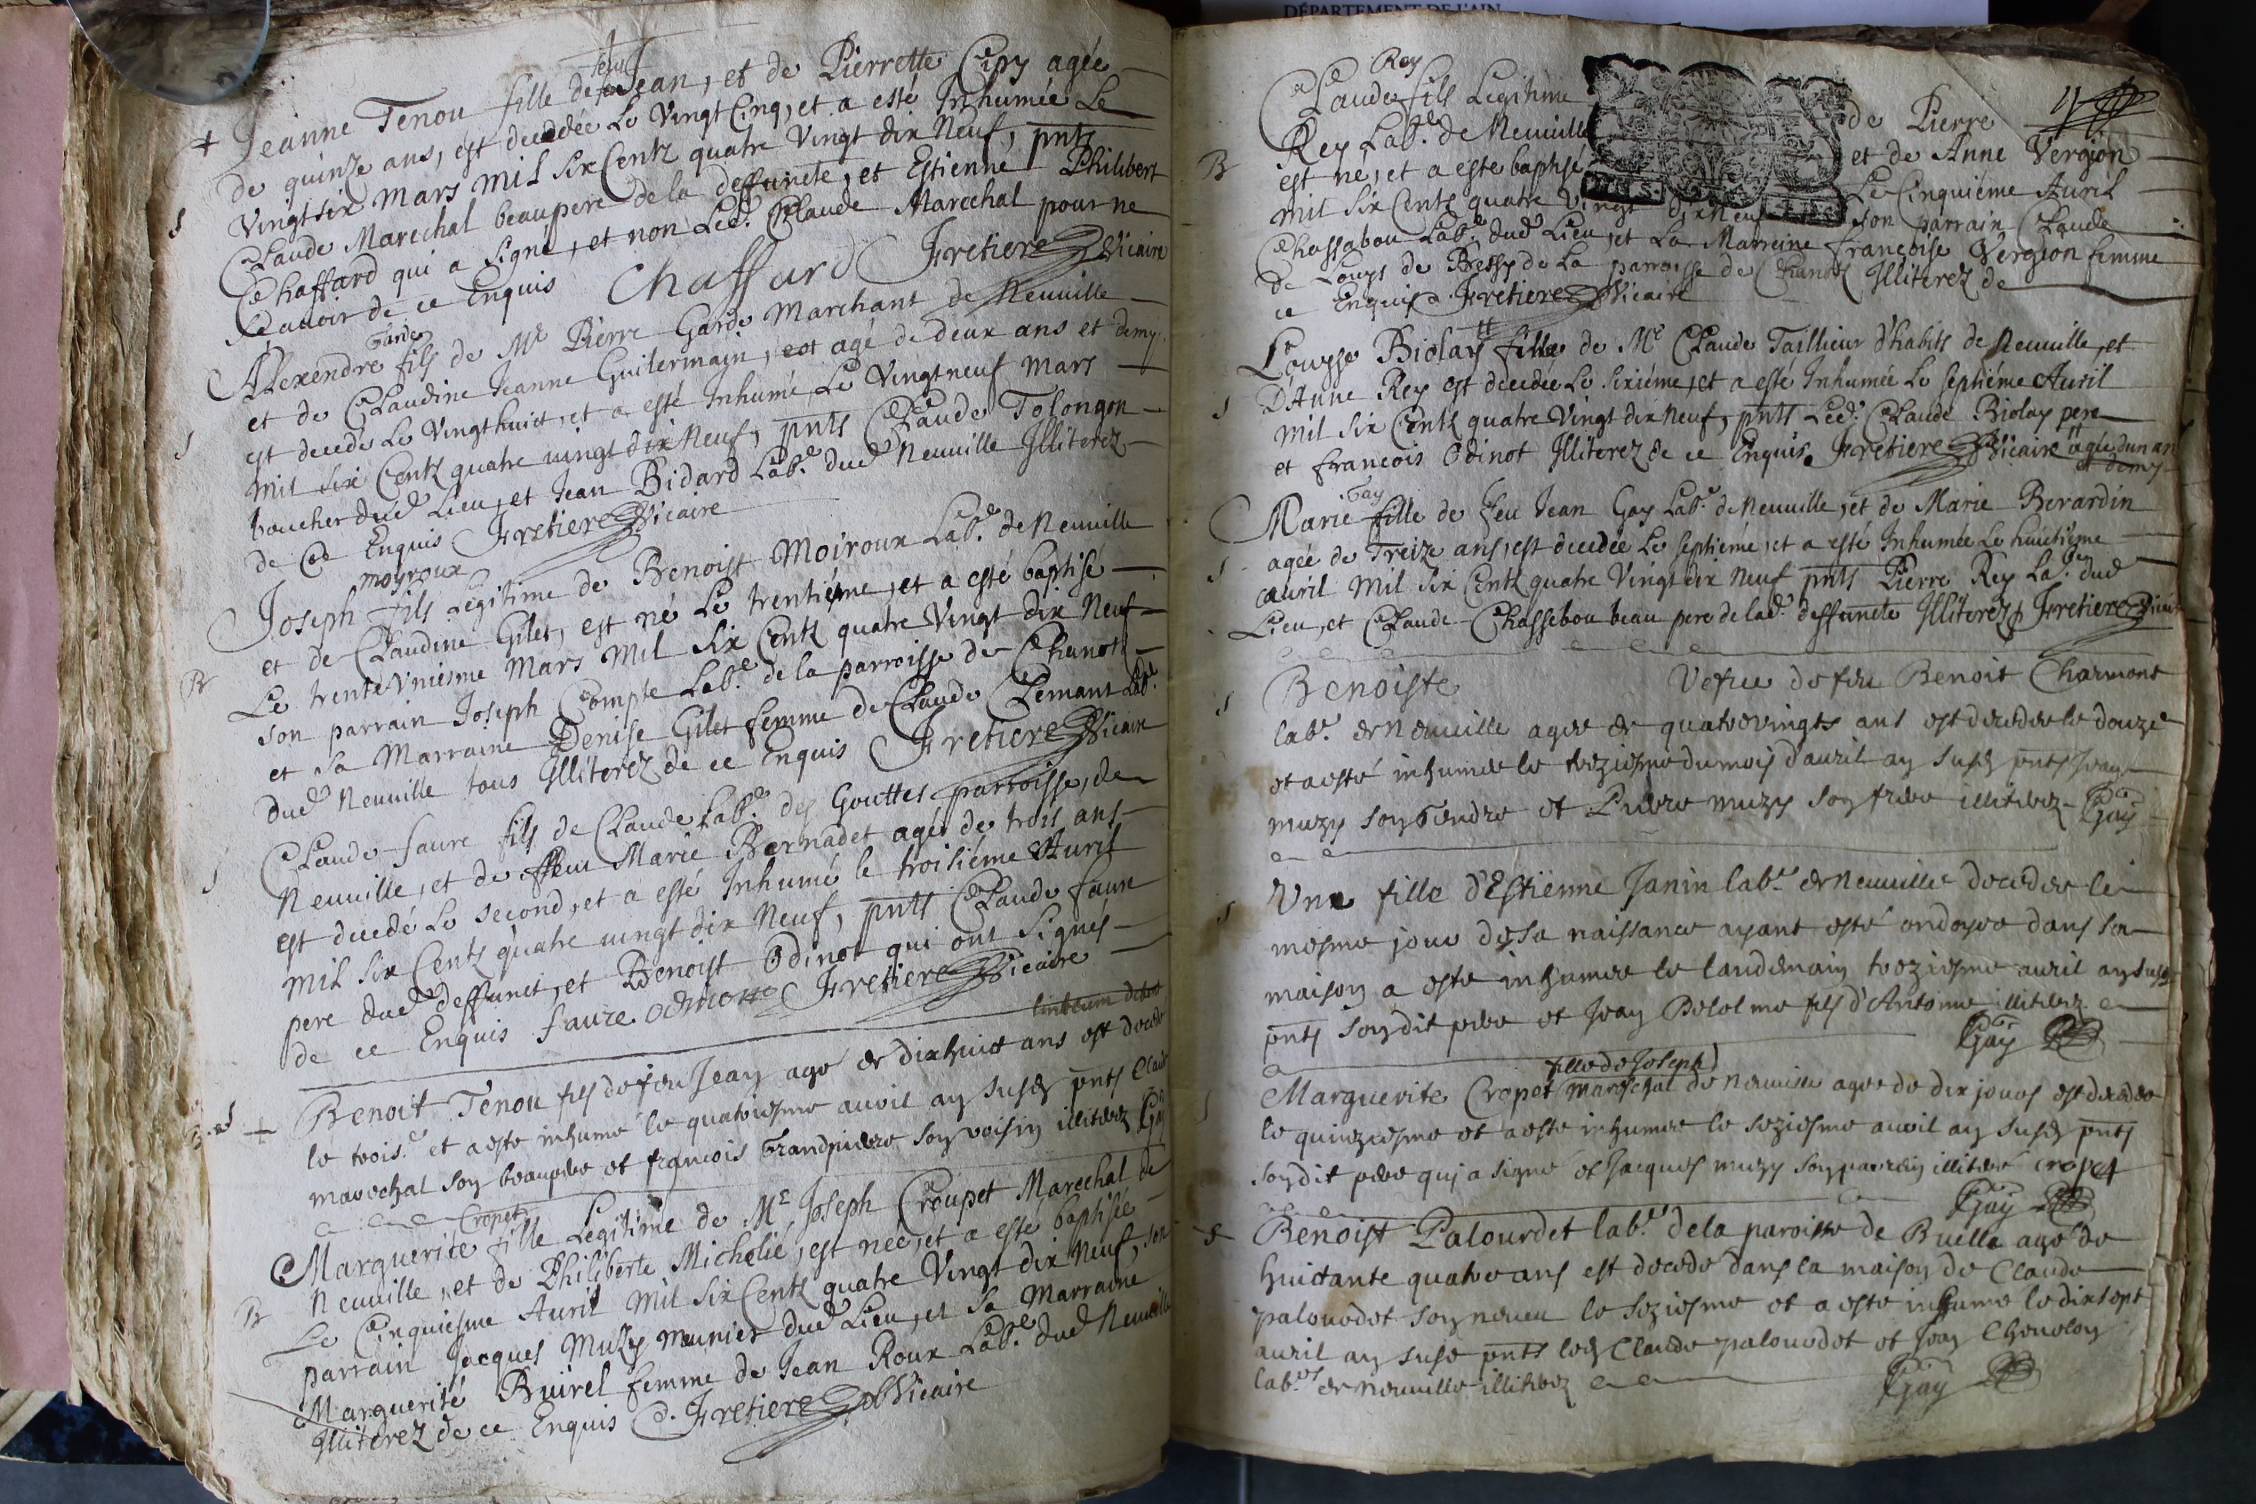 feu
Jeanne Tenou fille de feu Jean, et de Pierrette Cipy agée
de quinze ans, est decedée Le Vingt Cinq, et a esté Inhumée Le
Vingt six Mars Mil Six Centz quatre Vingt dix Neuf, pnts
Claude Marechal beaupere de la deffuncte, et Estienne Philibert
Chaffard qui a signé, et non Led. Claude Marechal pour ne
sçauoir de ce Enquis Chaffard Fretiere Vicaire
Garde
Alexendre fils de Mr Pierre Garde Marchant de Neuuille
et de Claudine Jeanne Guilermain, agé de deux ans et demy,
est decedé Le Vingthuict, et a esté Inhumé Le Vingtneuf Mars
Mil Six Centz quatre uingt dix Neuf, pnts Claude Tolongon
boucher dud Lieu, et Jean Bidard Labr. dud Neuuille Illiterez
de Ce Enquis Fretiere Vicaire
moyroux
Joseph fils Legitime de Benoist Moiroux Labr. de Neuuille
et de Claudine Gilet, est né Le trentiéme, et a esté baptisé
Le trente Vniesme Mars Mil Six Centz quatre Vingt dix Neuf
son parrain Joseph Compte Labr. de la parroisse de Chanotz
et sa Marraine Denise Gilet femme de Claude Clemant Labr.
dud Neuuille tous Illiterez de ce Enquis Fretiere Vicaire
Claude faure fils de Claude Labr. des Gouttes parroisse de
Neuuille, et de ffeu Marie Bernadet agée de trois ans
est decedé Le second, et a esté Inhumé le troisiéme Auril
Mil Six Centz quatre uingt dix Neuf, pnts Claude faure
pere dud deffunct, et Benoist Odinot qui ont signés
de ce Enquis faure odinot Fretiere Vicaire
linteum debet
Benoit Tenou fils de feu Jean agé de dixhuict ans est decedé
le trois.e et a esté inhumé le quatriesme auril an susd pnts Claude
mareschal son beaupere et françois Grandpierre son voisin illiterez Gay
Cropet
Marguerite fille Legitime de Mr Joseph Croupet Marechal de
Neuuille, et de Philiberte Michelié, est née, et a esté baptisée
Le Cinquiesme Auril Mil Six Centz quatre Vingt dix Neuf, son
parrain Jacques Muzy meunier dud Lieu, et sa Marraine
Marguerité Buirel femme de Jean Roux Labr. dud Neuuille
Illiterez de ce Enquis C. Fretiere Vicaire
Rey
Claude fils Legitime de Pierre
Rey Labr. de Neuuille et de Anne Vergion
B est né, et a esté baptisé Le Cinquiéme Auril
Mil Six Centz quatre Vingt dix Neuf son parrain Claude
Chassabou Labr. dud Lieu, et La Marreine françoise Vergion femme
de Louys de Bessy de La parroisse de Chanotz Illiterez de
ce Enquis Fretiere Vicaire
Louyse Biolay fille de Mr Claude Tailleur d'habits de Neuuille, et
D'Anne Rey est decedée Le Sixiéme, et a esté Inhumée Le Septiéme Auril
Mil Six Centz quatre Vingt dix Neuf, pnts Led. Claude Biolay pere
et François Odinot Illiterez de ce Enquis Fretiere Vicaire agée dun an
et demy
Gay
Marie fille de feu Jean Gay Labr. de Neuuille, et de Marie Berardin
agée de Treize ans, est decedée Le septiéme, et a esté Inhumée Le huictiéme
auril Mil Six Centz quatre Vingt dix Neuf pnts Pierre Rey Labr. dud
Lieu, et Claude Chassebou beau pere de lad. deffuncte Illiterez Fretiere Vicaire
Benoiste Vefue de feu Benoit Charmont
labr. de Neuuille agée de quatrevingts ans est decedée le douze
et a esté inhumée le treziesme du mois d'auril an susd pnts Jean
muzy son Gendre et Pierre muzy son frere illiterez Gay
Une fille d'Estienne Janin labr. de Neuuille decedée le
mesme jour de sa naissance ayant esté ondoyée dans sa
maison a esté inhumée le landemain treziesme auril an susd
pnts sondit pere et Jean Delolme fils d'Antoine illiterez
Gay
fille de Joseph
Marguerite Cropet mareschal de Neuuille agée de dix jours est decedée
le quinziesme et a esté inhumée le seziesme auril an susd pnts
sondit pere qui a signé et Jacques muzy son parrein illiteré cropet
Gay
Benoist Palourdet labr. de la paroisse de Ruelle agé de
huictante quatre ans est decedé dans la maison de Claude
palourdet son neueu le seziesme et a esté inhumé le dixsept
auril an susd pnts led Claude palourdet et Jean Cheuolon
labrs de Neuuille illiterez Gay